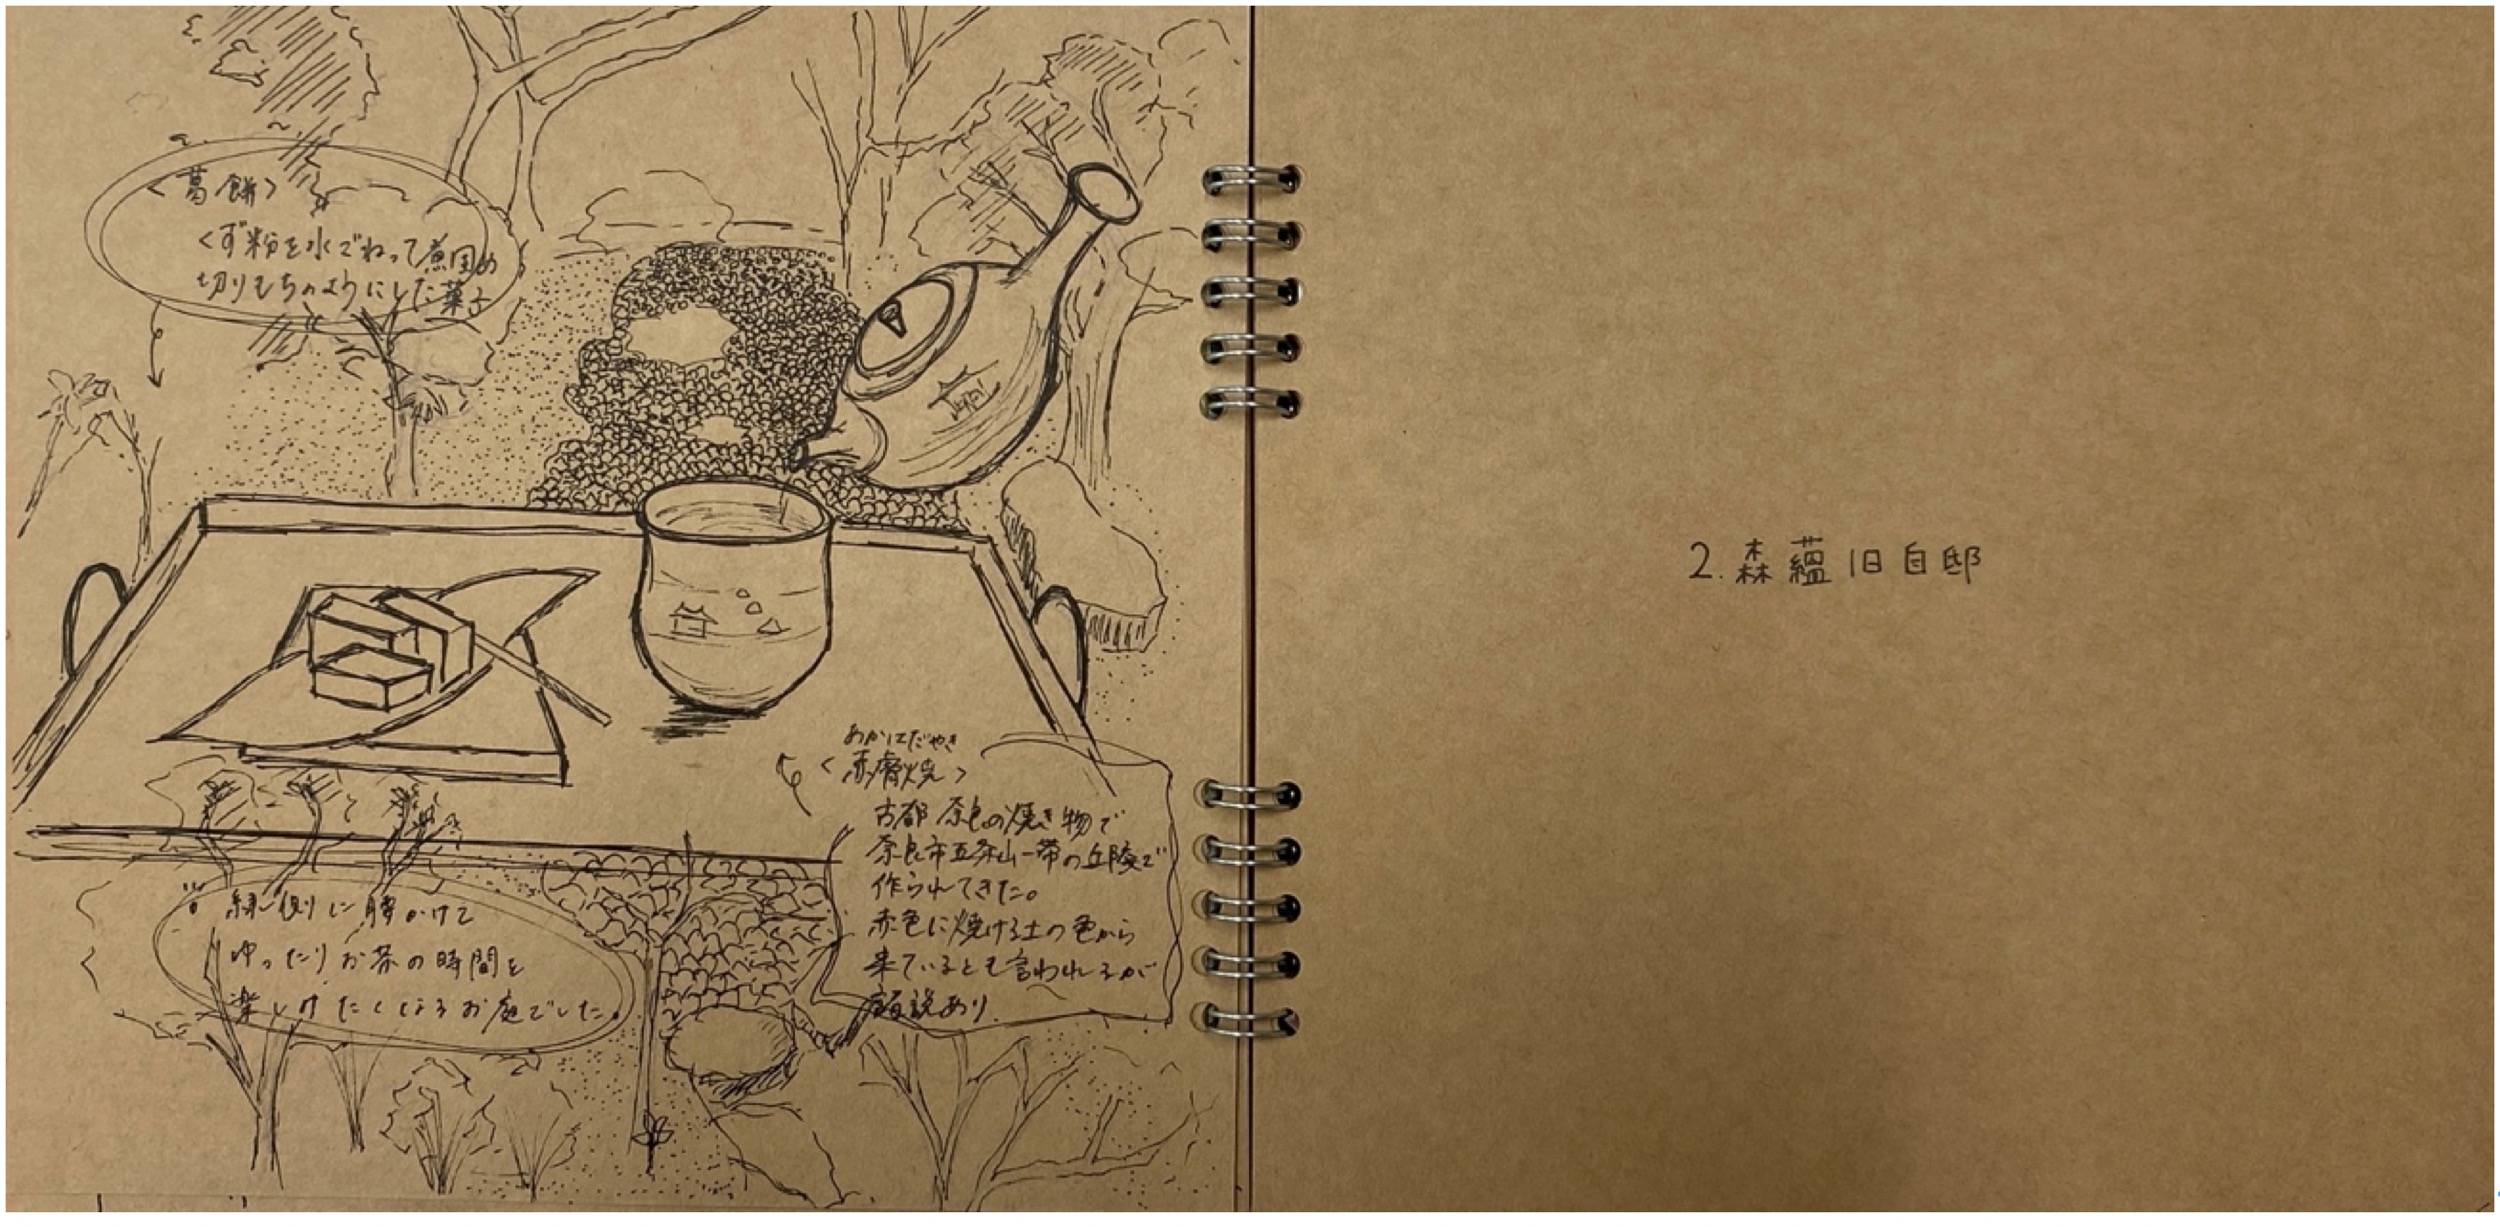 <葛餅>
くず粉を水でねって煮固め
切りもちのようにした菓子
あかはだやき
<赤膚焼>
古都 奈良の焼き物で
奈良市五条山一帯の丘陵で
作られてきた。
赤色に焼ける土の色から
来ているとも言われるが
諸説あり
縁側に腰かけて
ゆったりお茶の時間を
楽しみたくなるお庭でした。
2. 森蘊旧自邸